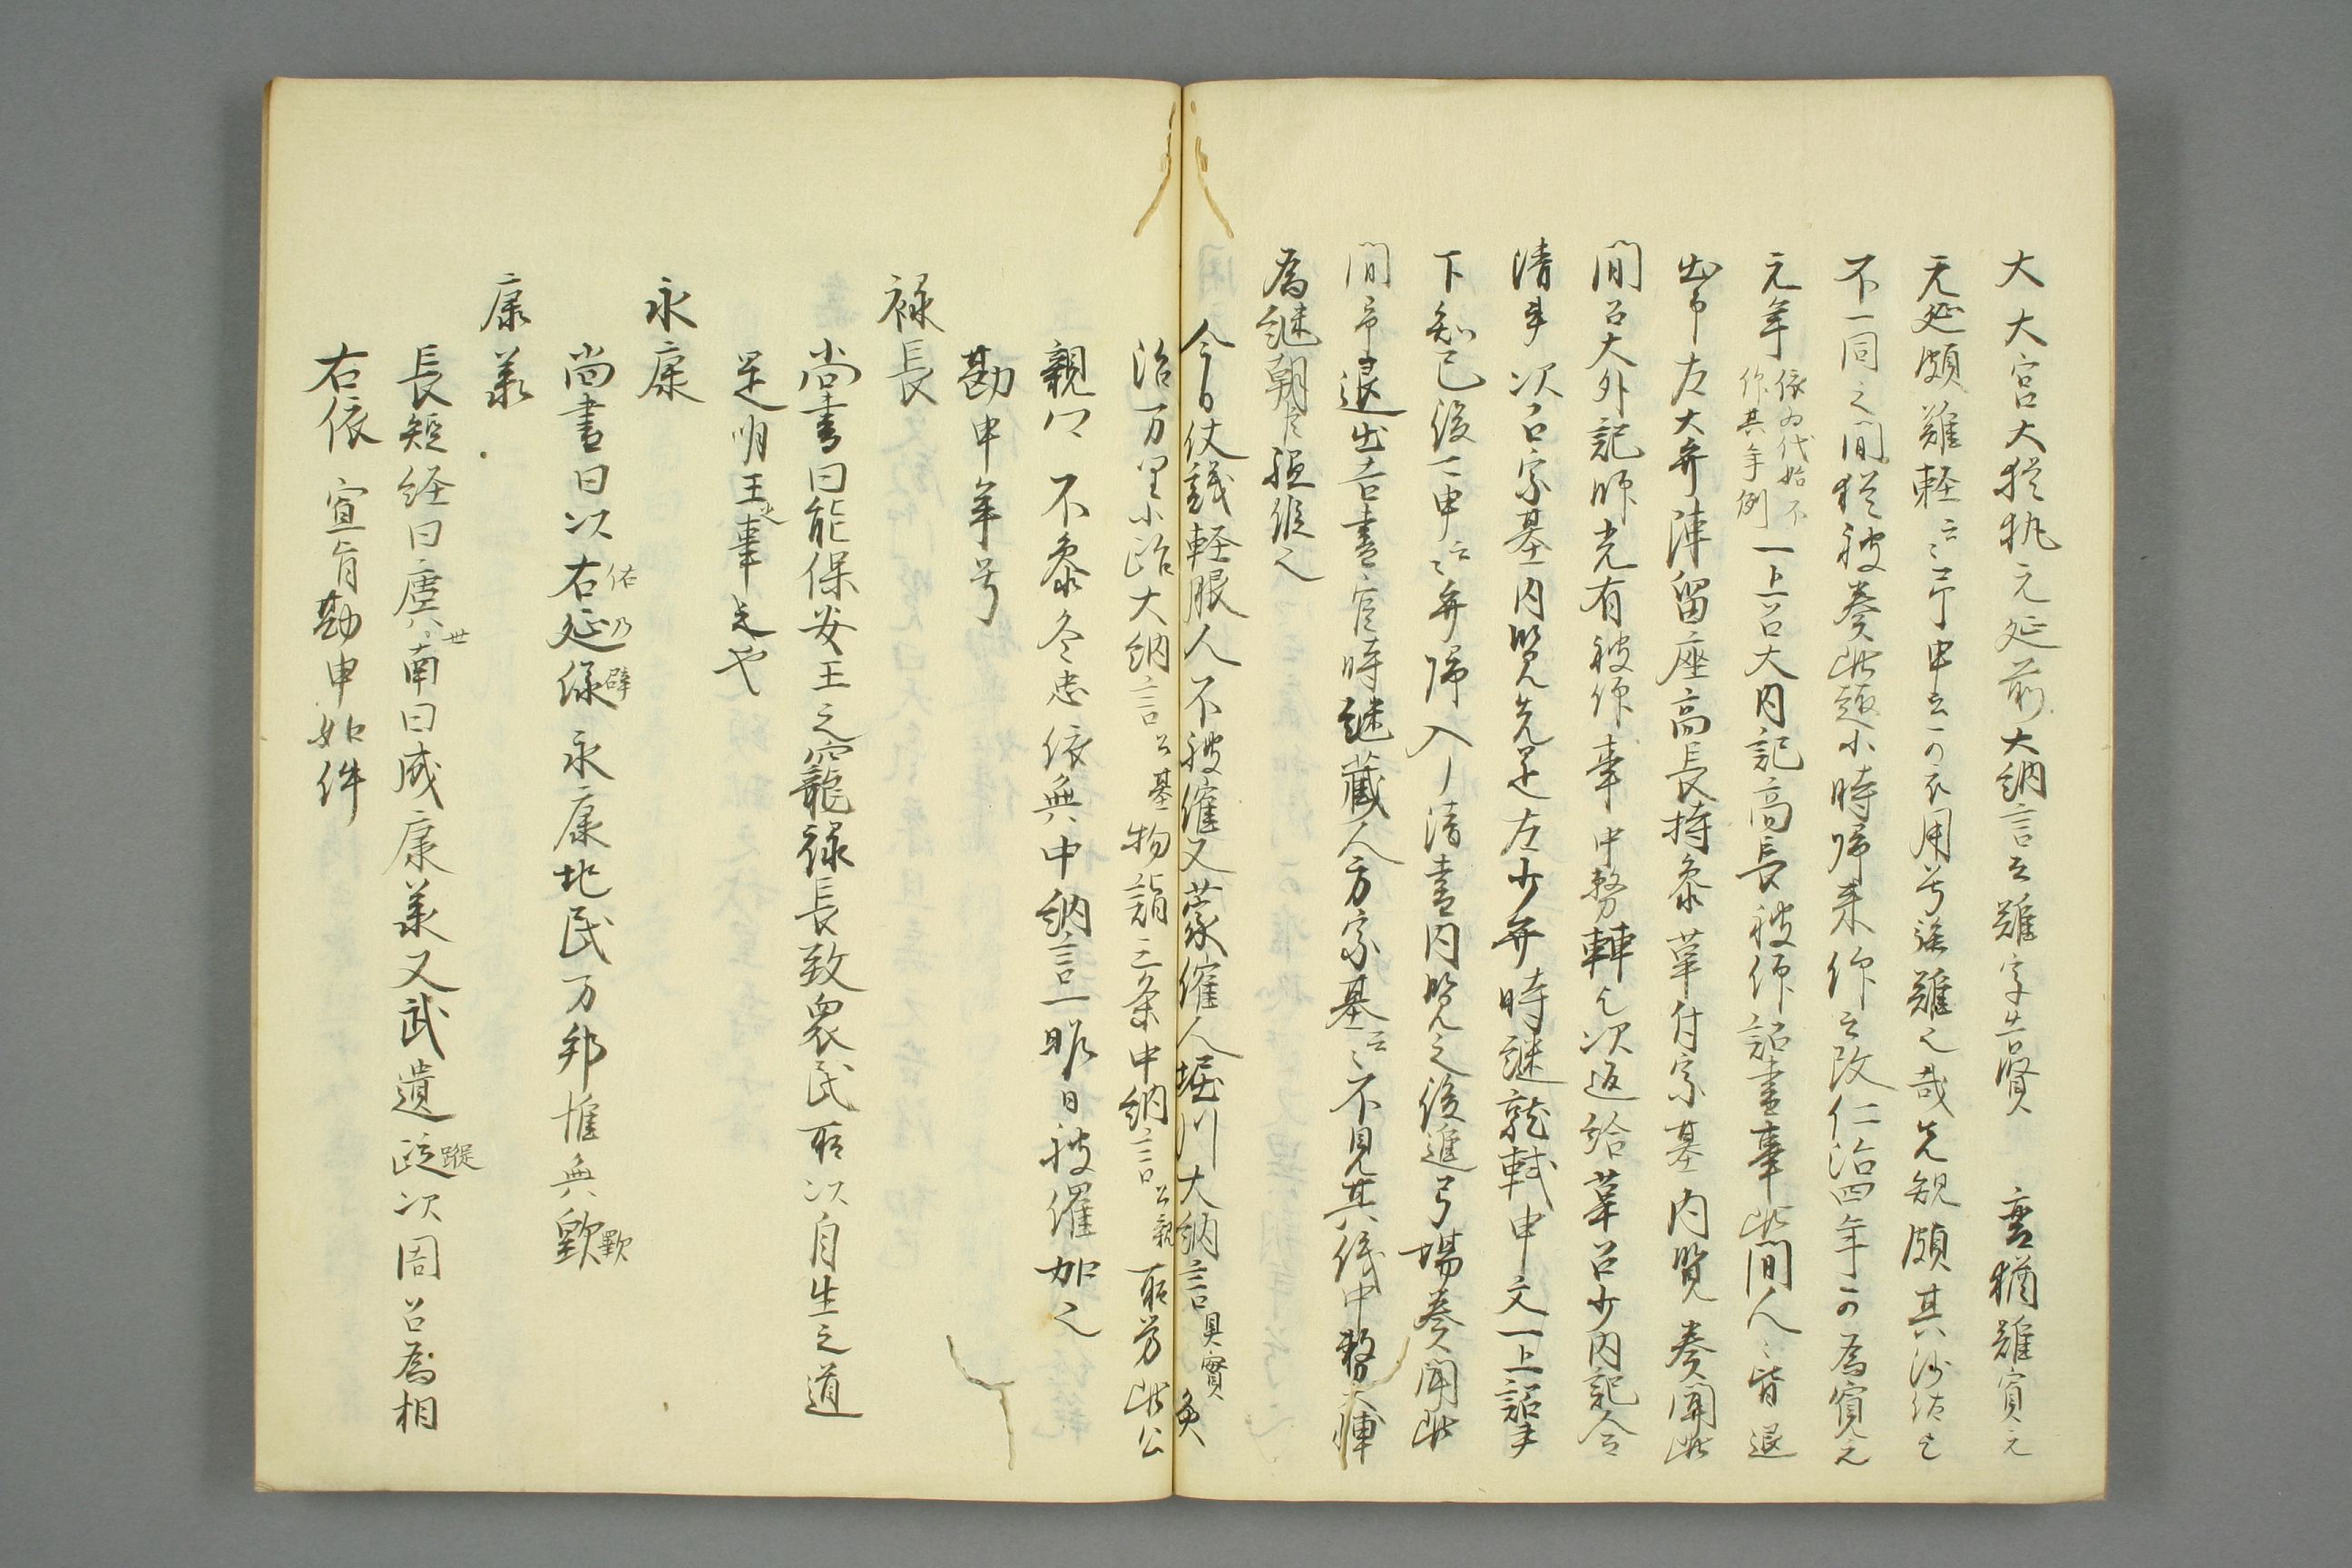 大大宮大猶執元延前大納言云難字告賢 亮猶難寛元
元延頗難軽云々了申云可不用号無難之哉先規頗其沙汰也
不一同之間猶被奏此趣小時帰来仰云改仁治四年可為寛元
元年依為代始不仰其年例一上召大内記高長被仰詔書事此間人々皆退
出了左大弁陣留座高長持参草付宗基内覧奏聞此
間召大外記師光有被仰事中務輔也次返給草召少内記令
清書次召宗基内覧先是左少弁時継就軾申文一上詔書
下知已後可申云々弁帰入了清書内覧之後進弓場奏聞此
間予退出吉書官時継蔵人方宗基云々不見其儀中務大輔
為継朝臣祗候之
今日仗議軽服人不被催又蒙催人堀川大納言具実奐
治万里小路大納言公基物詣三条中納言公親所労此公
親以不参冬忠依無中納言一昨日被催加之
勘申年号
禄長
尚書曰能保安王之寵禄長致衆民所以自生之道
是明王之事是也
永康
尚書曰以右佑延乃縁辟永康地民万邦惟無歝歝
康義
長短経曰虞世南曰成康義又武遺迹蹤次周召為相
右依 宣旨勘申如件